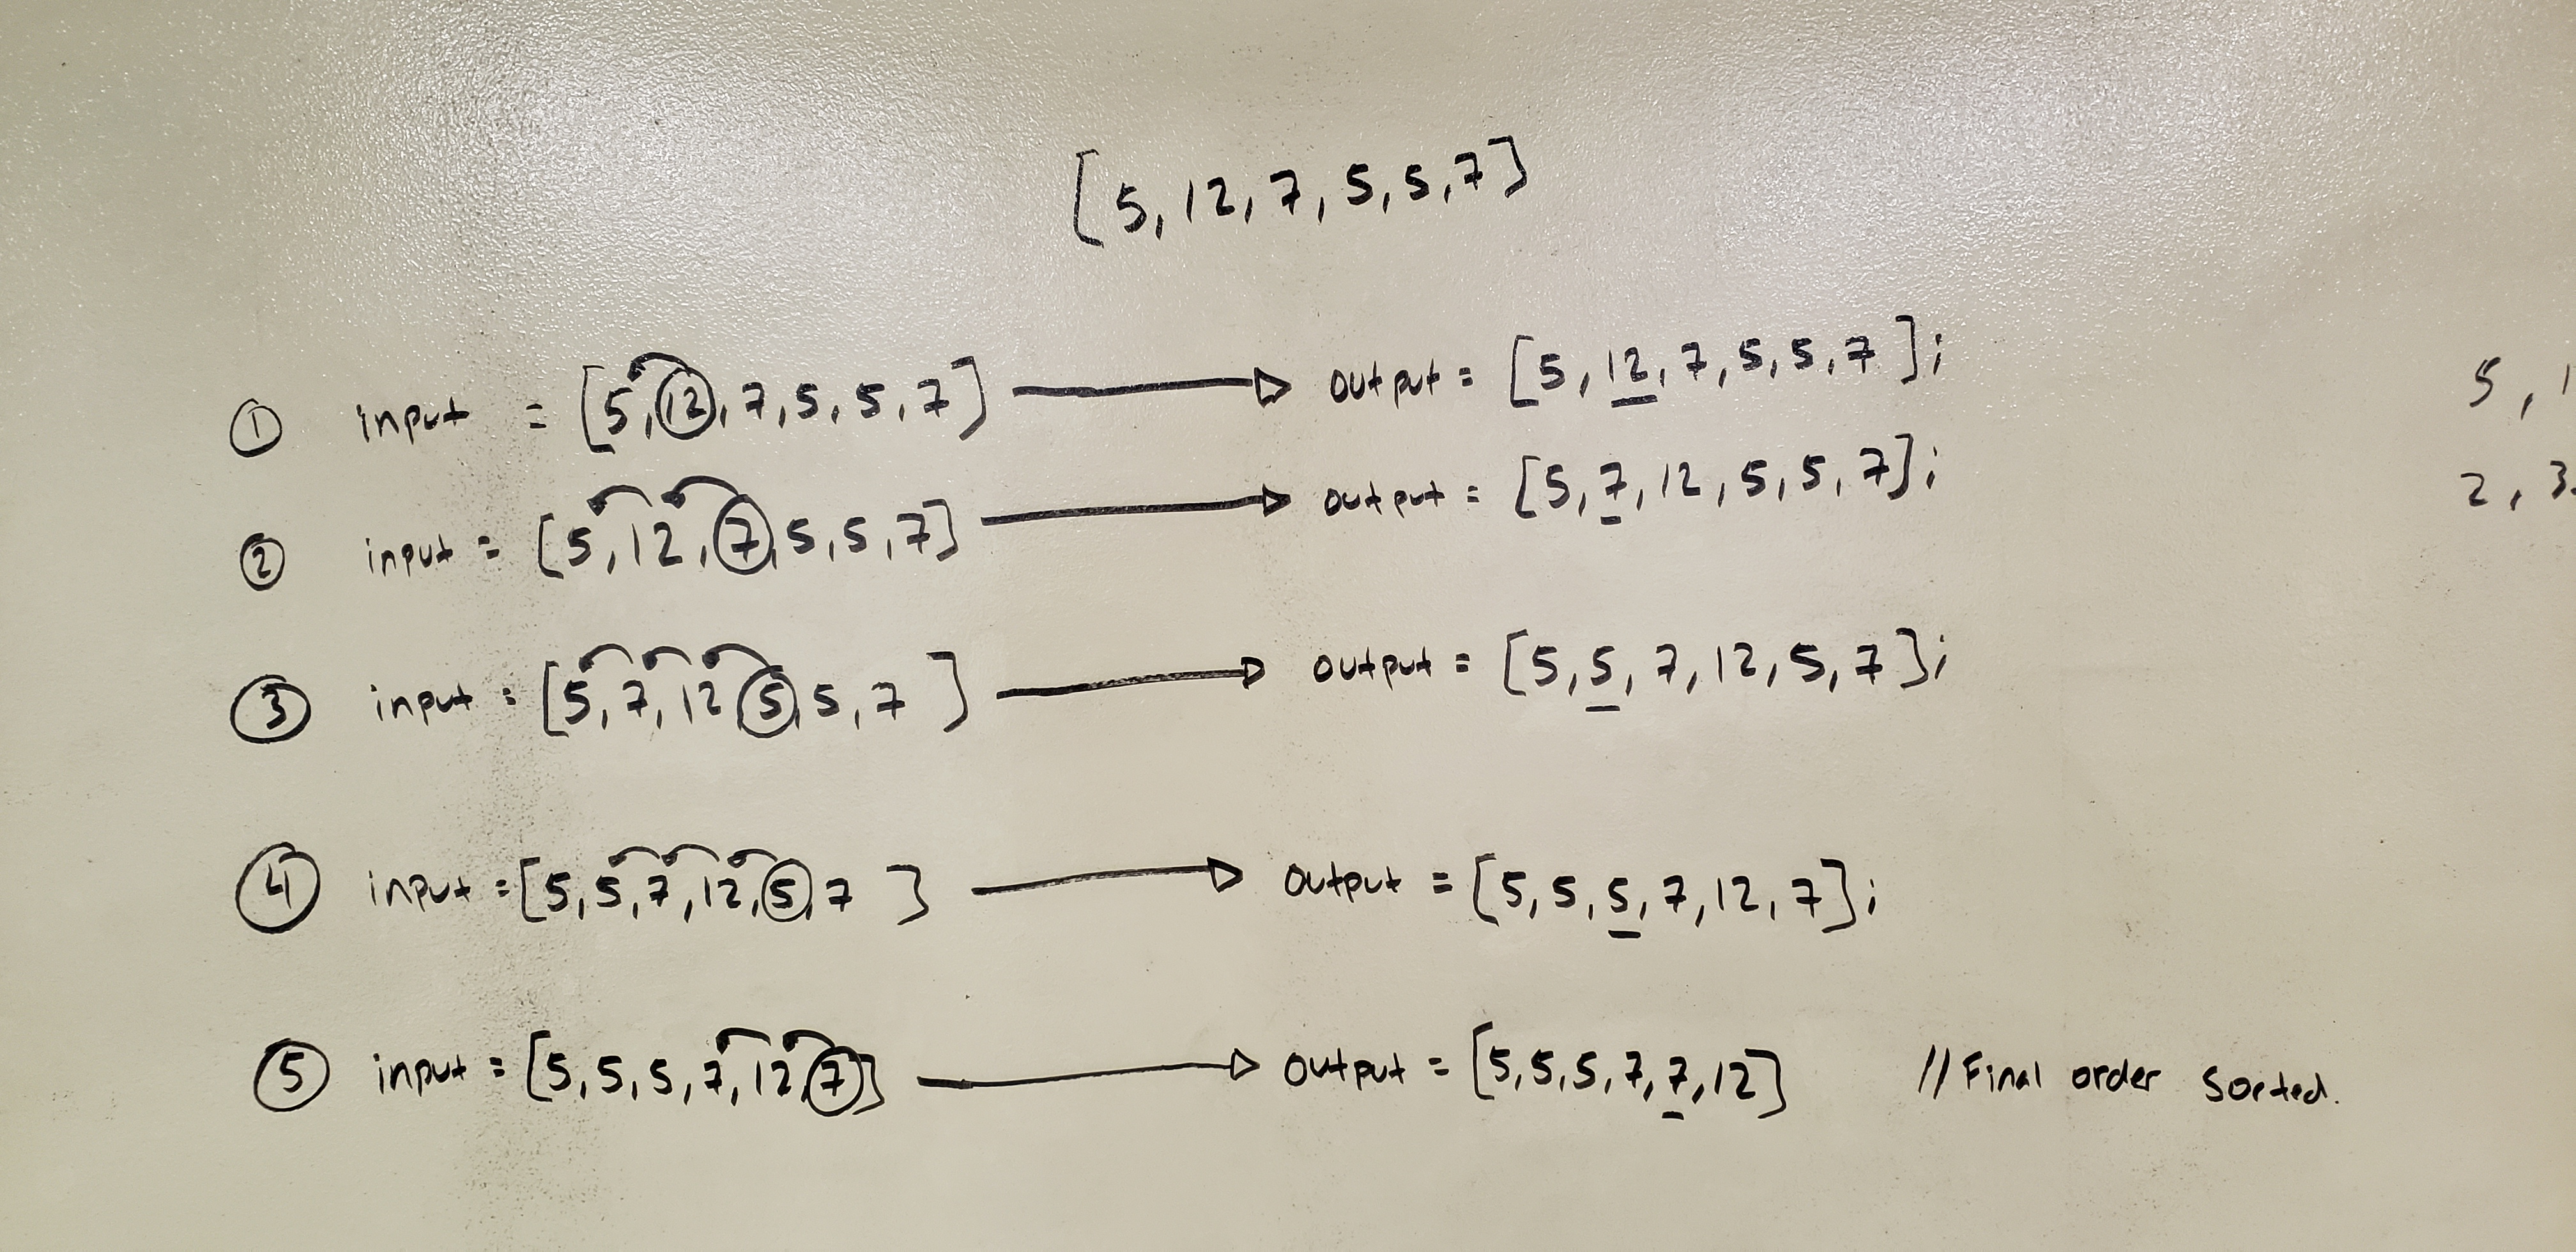 [5, 12, 7, 5, 5, 7]
① input = [5, 12, 7, 5, 5, 7] → output = [5, 12, 7, 5, 5, 7];
5, 1
② input = [5, 12, 7, 5, 5, 7] → output = [5, 7, 12, 5, 5, 7];
2, 3
③ input = [5, 7, 12, 5, 5, 7] → output = [5, 5, 7, 12, 5, 7];
④ input = [5, 5, 7, 12, 5, 7] → output = [5, 5, 5, 7, 12, 7];
⑤ input = [5, 5, 5, 7, 12, 7] → output = [5, 5, 5, 7, 7, 12] //Final order sorted.